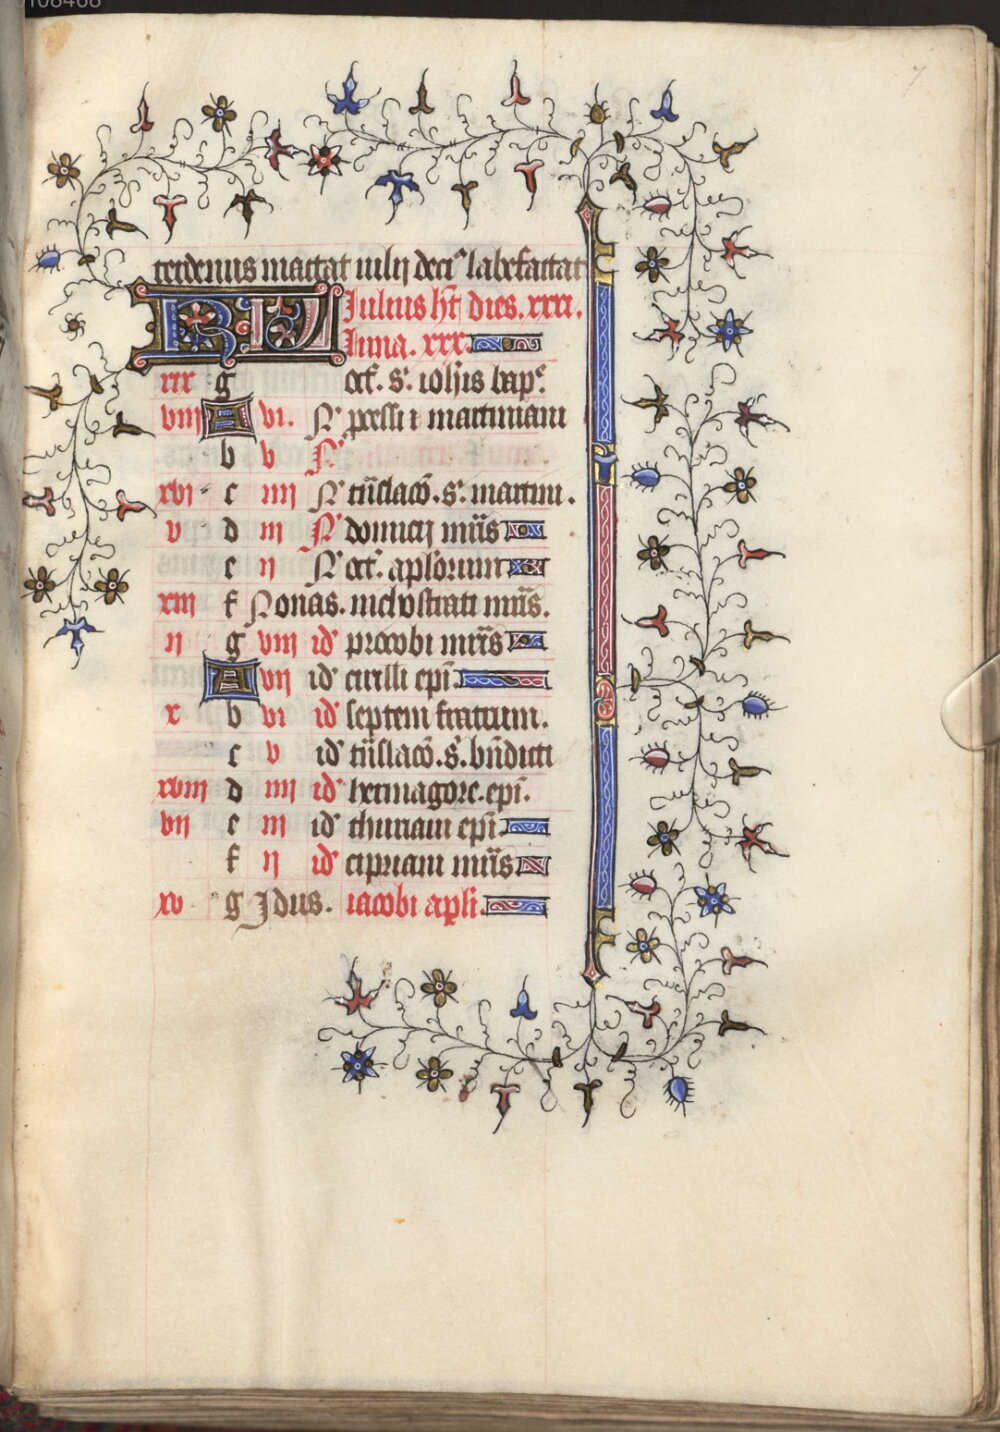 7
tredenus mactat iulij deci⁹ labefactat
KL Iulius ht̄ dies. xxxi.
luna. xxx.
xix g oct̄. s̄. ioh̄is bap̄.
viii A vi. N̄ processi ⁊ martiniani
b v N̄
xvi c iiii N̄ tn̄slacō. s̄. martini.
v d iii N̄ domicij mr̄is
e ii N̄ oct̄. apl̓orum
xiii f Nonas. nichostrati mr̄is.
ii g viii id̄ procobi mr̄is
A vii id̄ cirilli ep̄i
x b vi id̄ septem fratrum.
c v id̄ tn̄slacō. s̄. bn̄dicti
xviii d iiii id̄ hermagore. ep̄i.
vii e iii id̄ thuriani ep̄i
f ii id̄ cipriani mr̄is
xv g Idus. iacobi apl̄i.